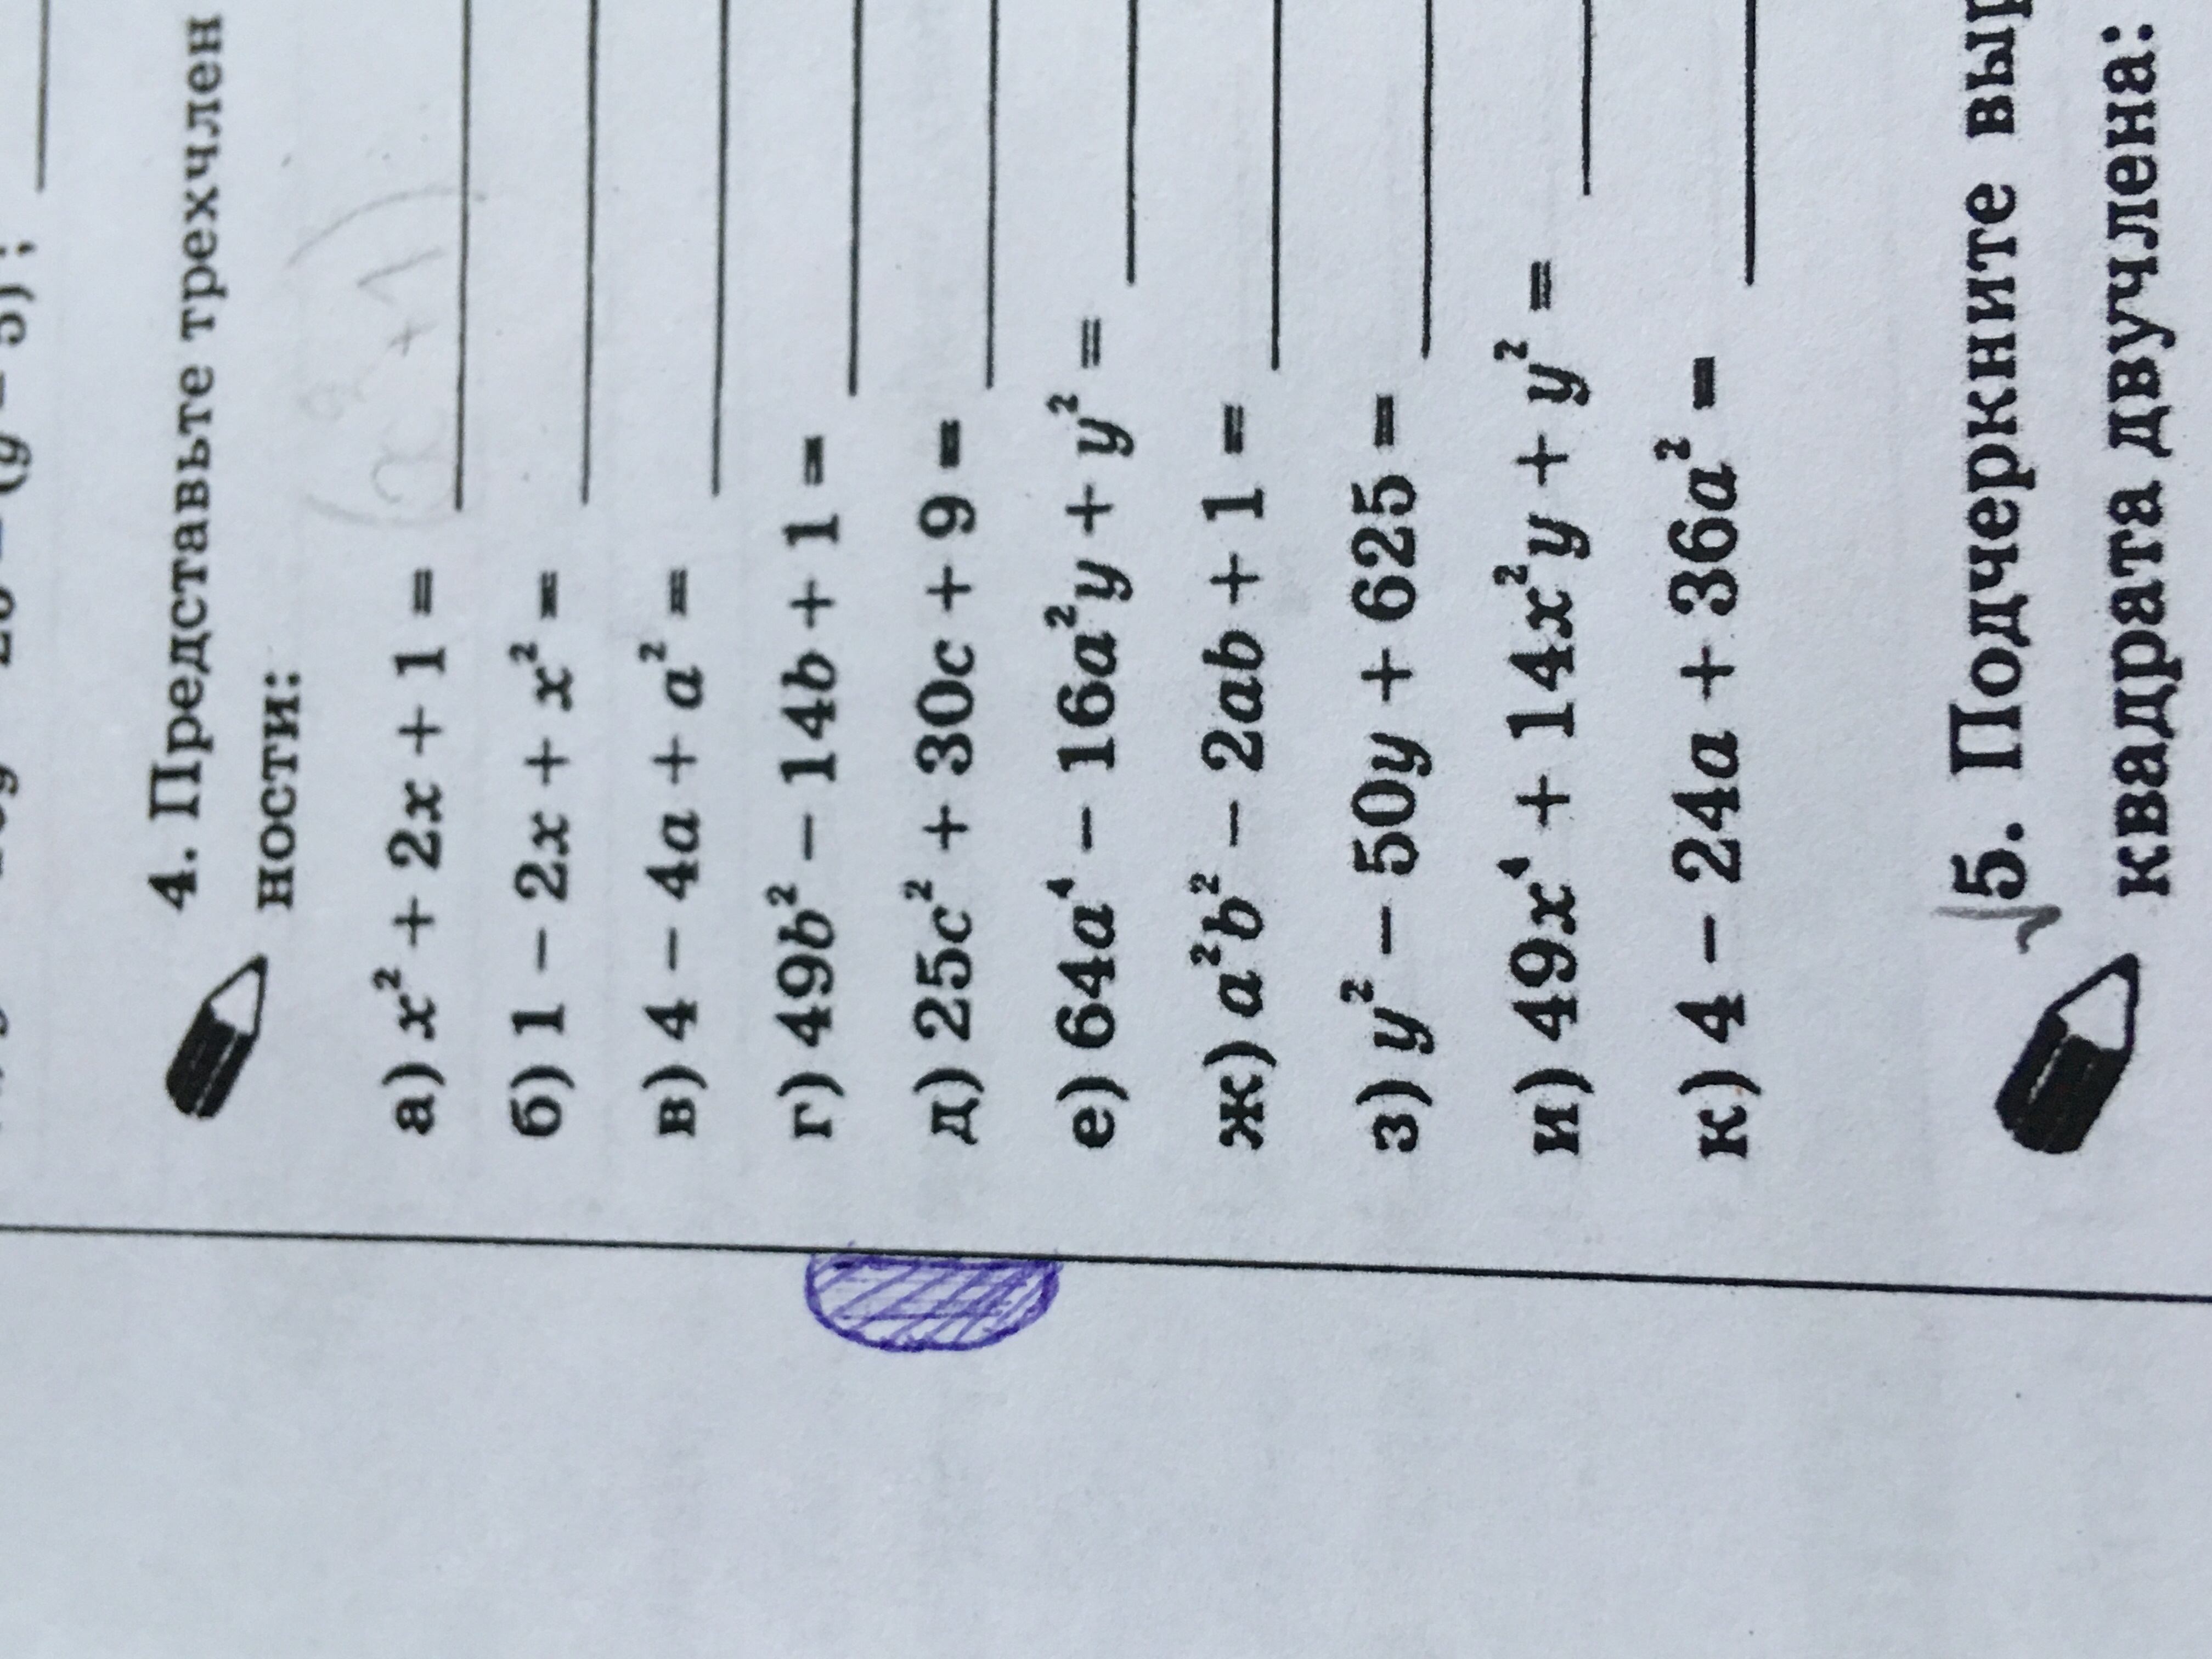 (y – 5) ;
4. Представьте трехчлен
ности:
а) x² + 2x + 1 = (x² + 1)
б) 1 – 2x + x² =
в) 4 – 4a + a² =
г) 49b² – 14b + 1 =
д) 25c² + 30c + 9 =
е) 64a⁴ – 16a²y + y² =
ж) a²b² – 2ab + 1 =
з) y² – 50y + 625 =
и) 49x⁴ + 14x²y + y² =
к) 4 – 24a + 36a² =
5. Подчеркните
квадрата двучлена: